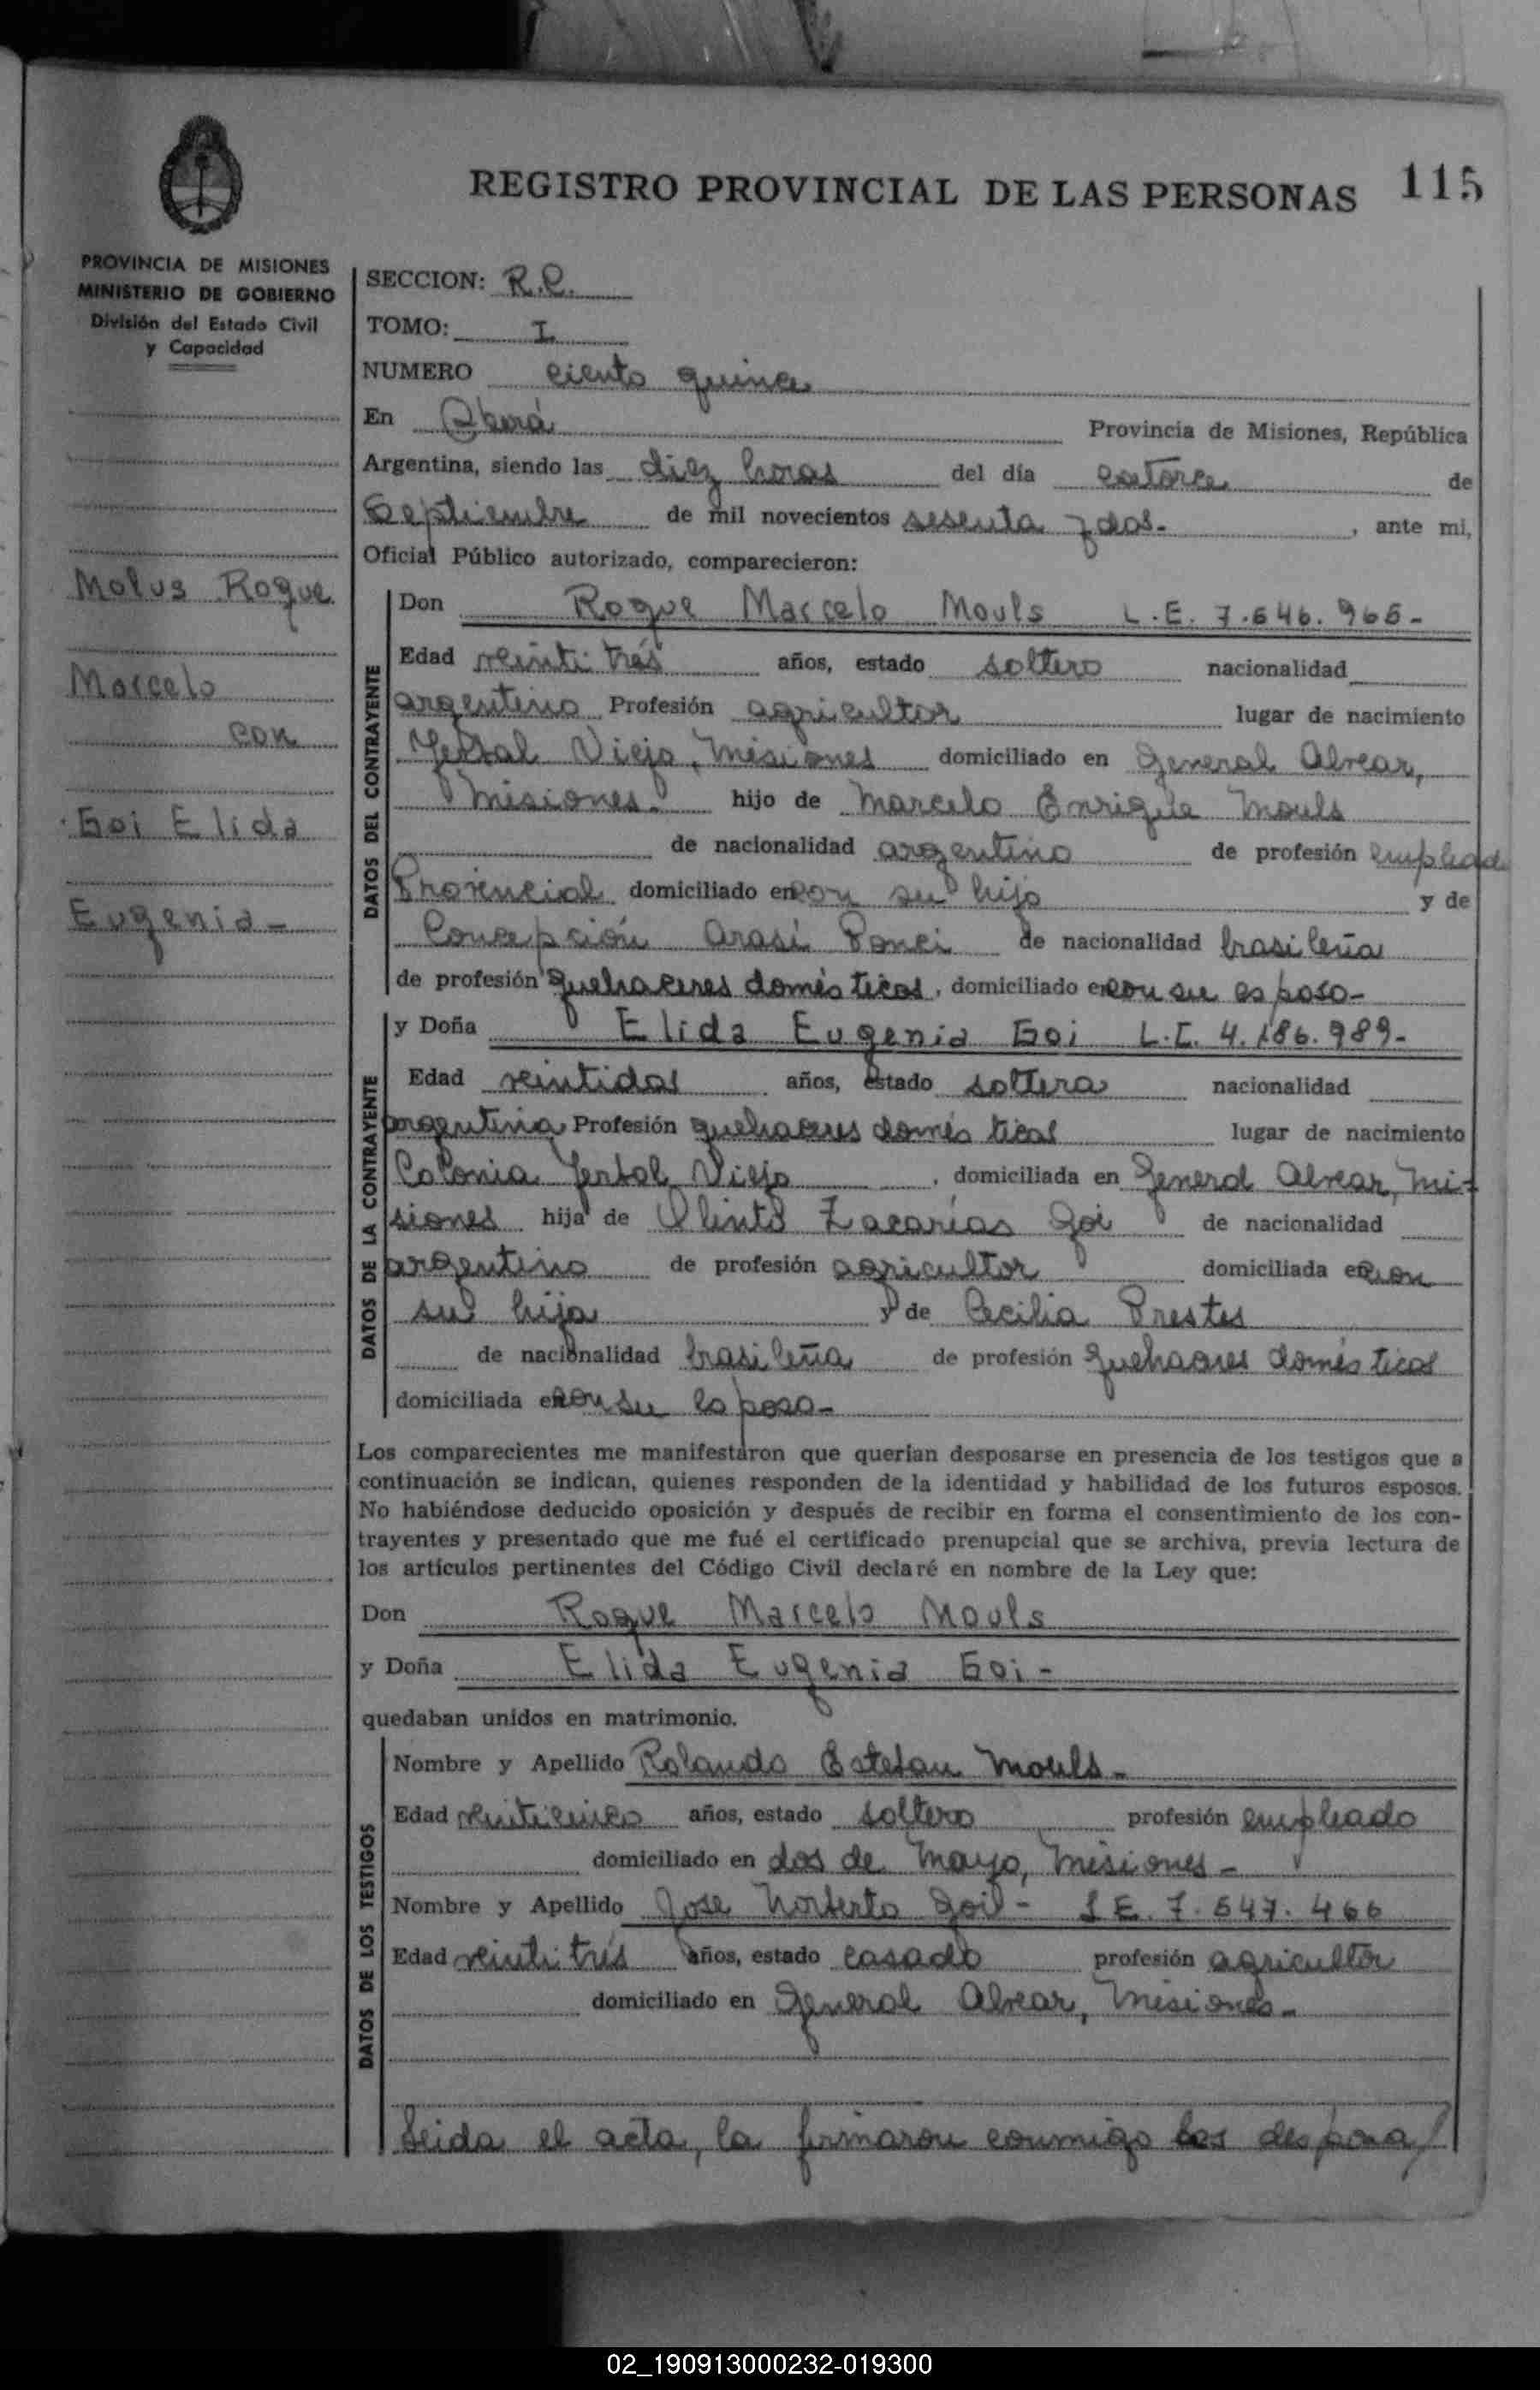 REGISTRO PROVINCIAL DE LAS PERSONAS 115
PROVINCIA DE MISIONES
MINISTERIO DE GOBIERNO
División del Estado Civil
y Capacidad
Molus Roque
Marcelo
con
Goi Elida
Eugenia-
SECCION: R.C.
TOMO: I
NUMERO ciento quince
En Oberá Provincia de Misiones, República
Argentina, siendo las diez horas del día catorce de
Septiembre de mil novecientos sesenta y dos-, ante mi,
Oficial Público autorizado, comparecieron:
DATOS DEL CONTRAYENTE
Don Roque Marcelo Mouls L.E. 7.546.965-
Edad veinti tres años, estado soltero nacionalidad
argentino Profesión agricultor lugar de nacimiento
Yerbal Viejo, Misiones domiciliado en General Alvear,
Misiones- hijo de Marcelo Enrique Mouls
de nacionalidad argentino de profesión emplead
Provincial domiciliado en con su hijo y de
Concepción Arasi Ponci de nacionalidad brasileña
de profesión quehaceres domésticos, domiciliado en con su esposo-
DATOS DE LA CONTRAYENTE
y Doña Elida Eugenia Goi L.C. 4.186.989-
Edad veintidos años, estado soltera nacionalidad
argentina Profesión quehaceres domésticos lugar de nacimiento
Colonia Yerbal Viejo, domiciliada en General Alvear, Mi-
siones hija de Olinto Zacarías Goi de nacionalidad
argentino de profesión agricultor domiciliada en con
su hija y de Cecilia Prestes
de nacionalidad brasileña de profesión quehaceres domésticos
domiciliada en con su esposo-
Los comparecientes me manifestaron que querían desposarse en presencia de los testigos que a
continuación se indican, quienes responden de la identidad y habilidad de los futuros esposos.
No habiéndose deducido oposición y después de recibir en forma el consentimiento de los con-
trayentes y presentado que me fué el certificado prenupcial que se archiva, previa lectura de
los artículos pertinentes del Código Civil declaré en nombre de la Ley que:
Don Roque Marcelo Mouls
y Doña Elida Eugenia Goi-
quedaban unidos en matrimonio.
DATOS DE LOS TESTIGOS
Nombre y Apellido Rolando Esteban Mouls-
Edad veinticinco años, estado soltero profesión empleado
domiciliado en dos de Mayo, Misiones-
Nombre y Apellido Jose Norberto Goi- L E. 7.547.466
Edad veinti tres años, estado casado profesión agricultor
domiciliado en General Alvear, Misiones-
Leida el acta, la firmaron conmigo los desposa/
02_190913000232-019300